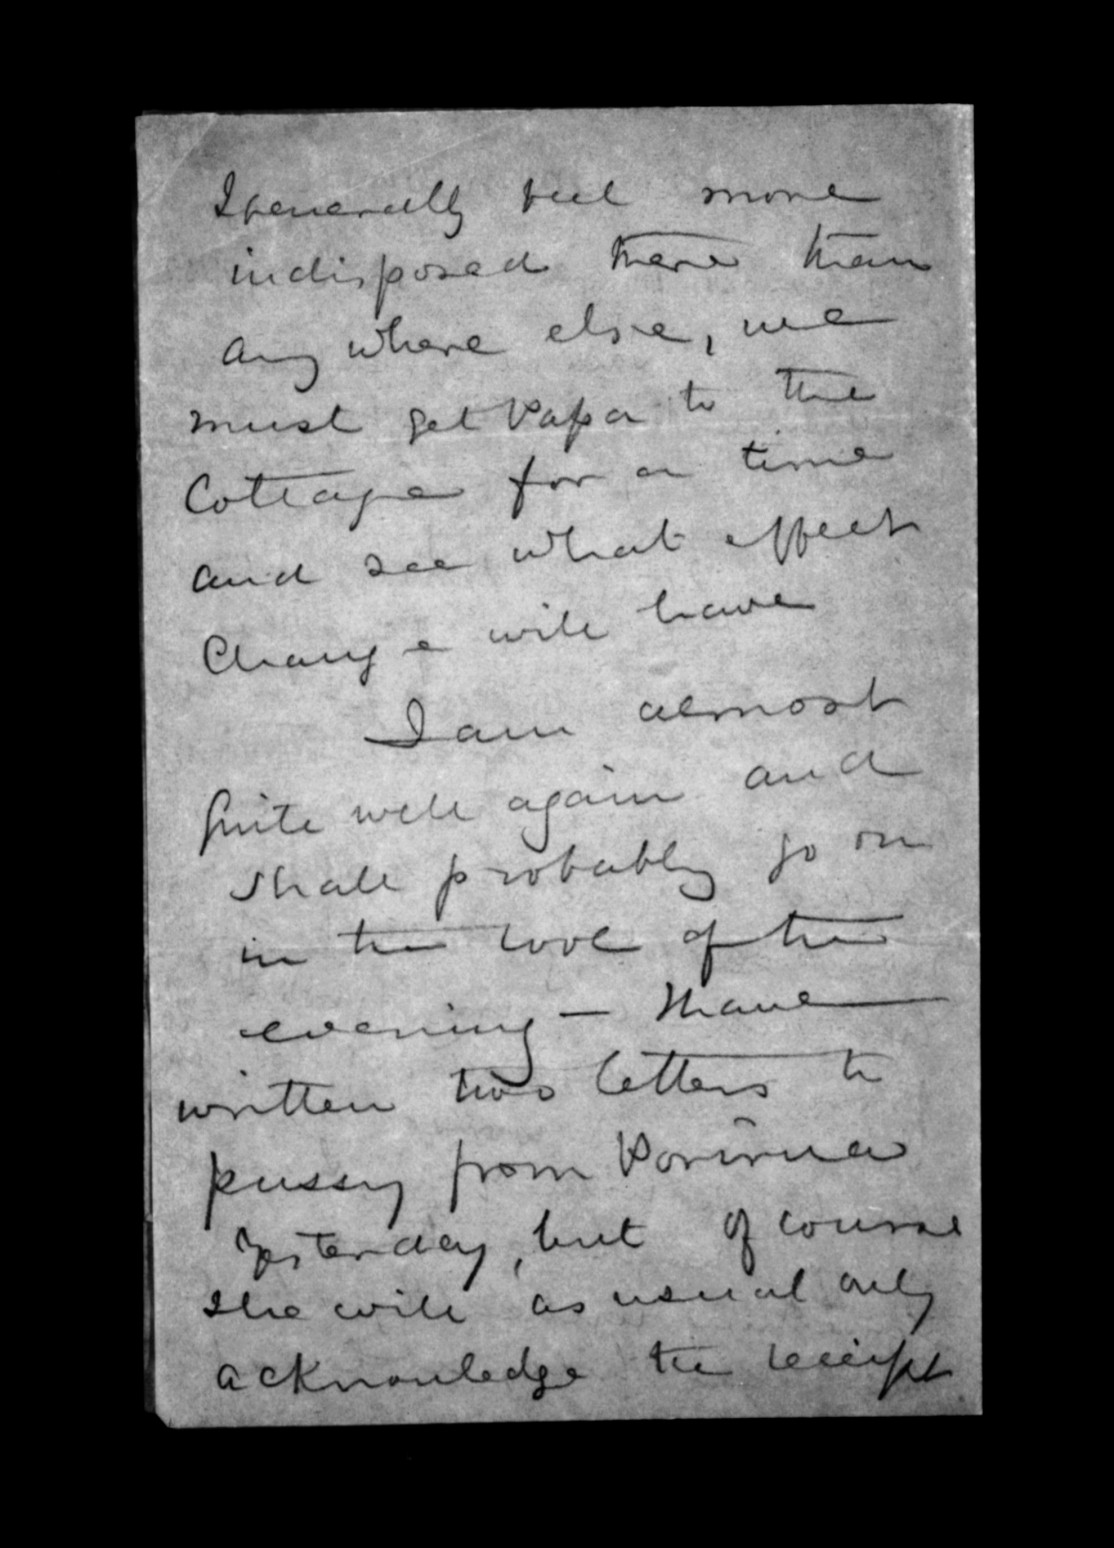 I generally feel more
indisposed there than
any where else, we
must get Papa to the
Cottage for a time
and see what effect
Change will have
I am almost
quite well again and
shall probably go on
in the cool of the
evening — I have
written two letters to
pussy from Porirua
Yesterday, but of course
she will as usual only
acknowledge the receipt